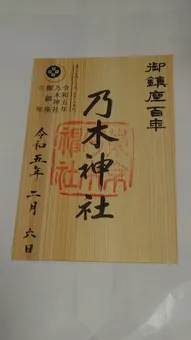 御鎮座百年
乃木神社
令和五年
乃木神社
御鎮座
百年
令和五年 二月 六日